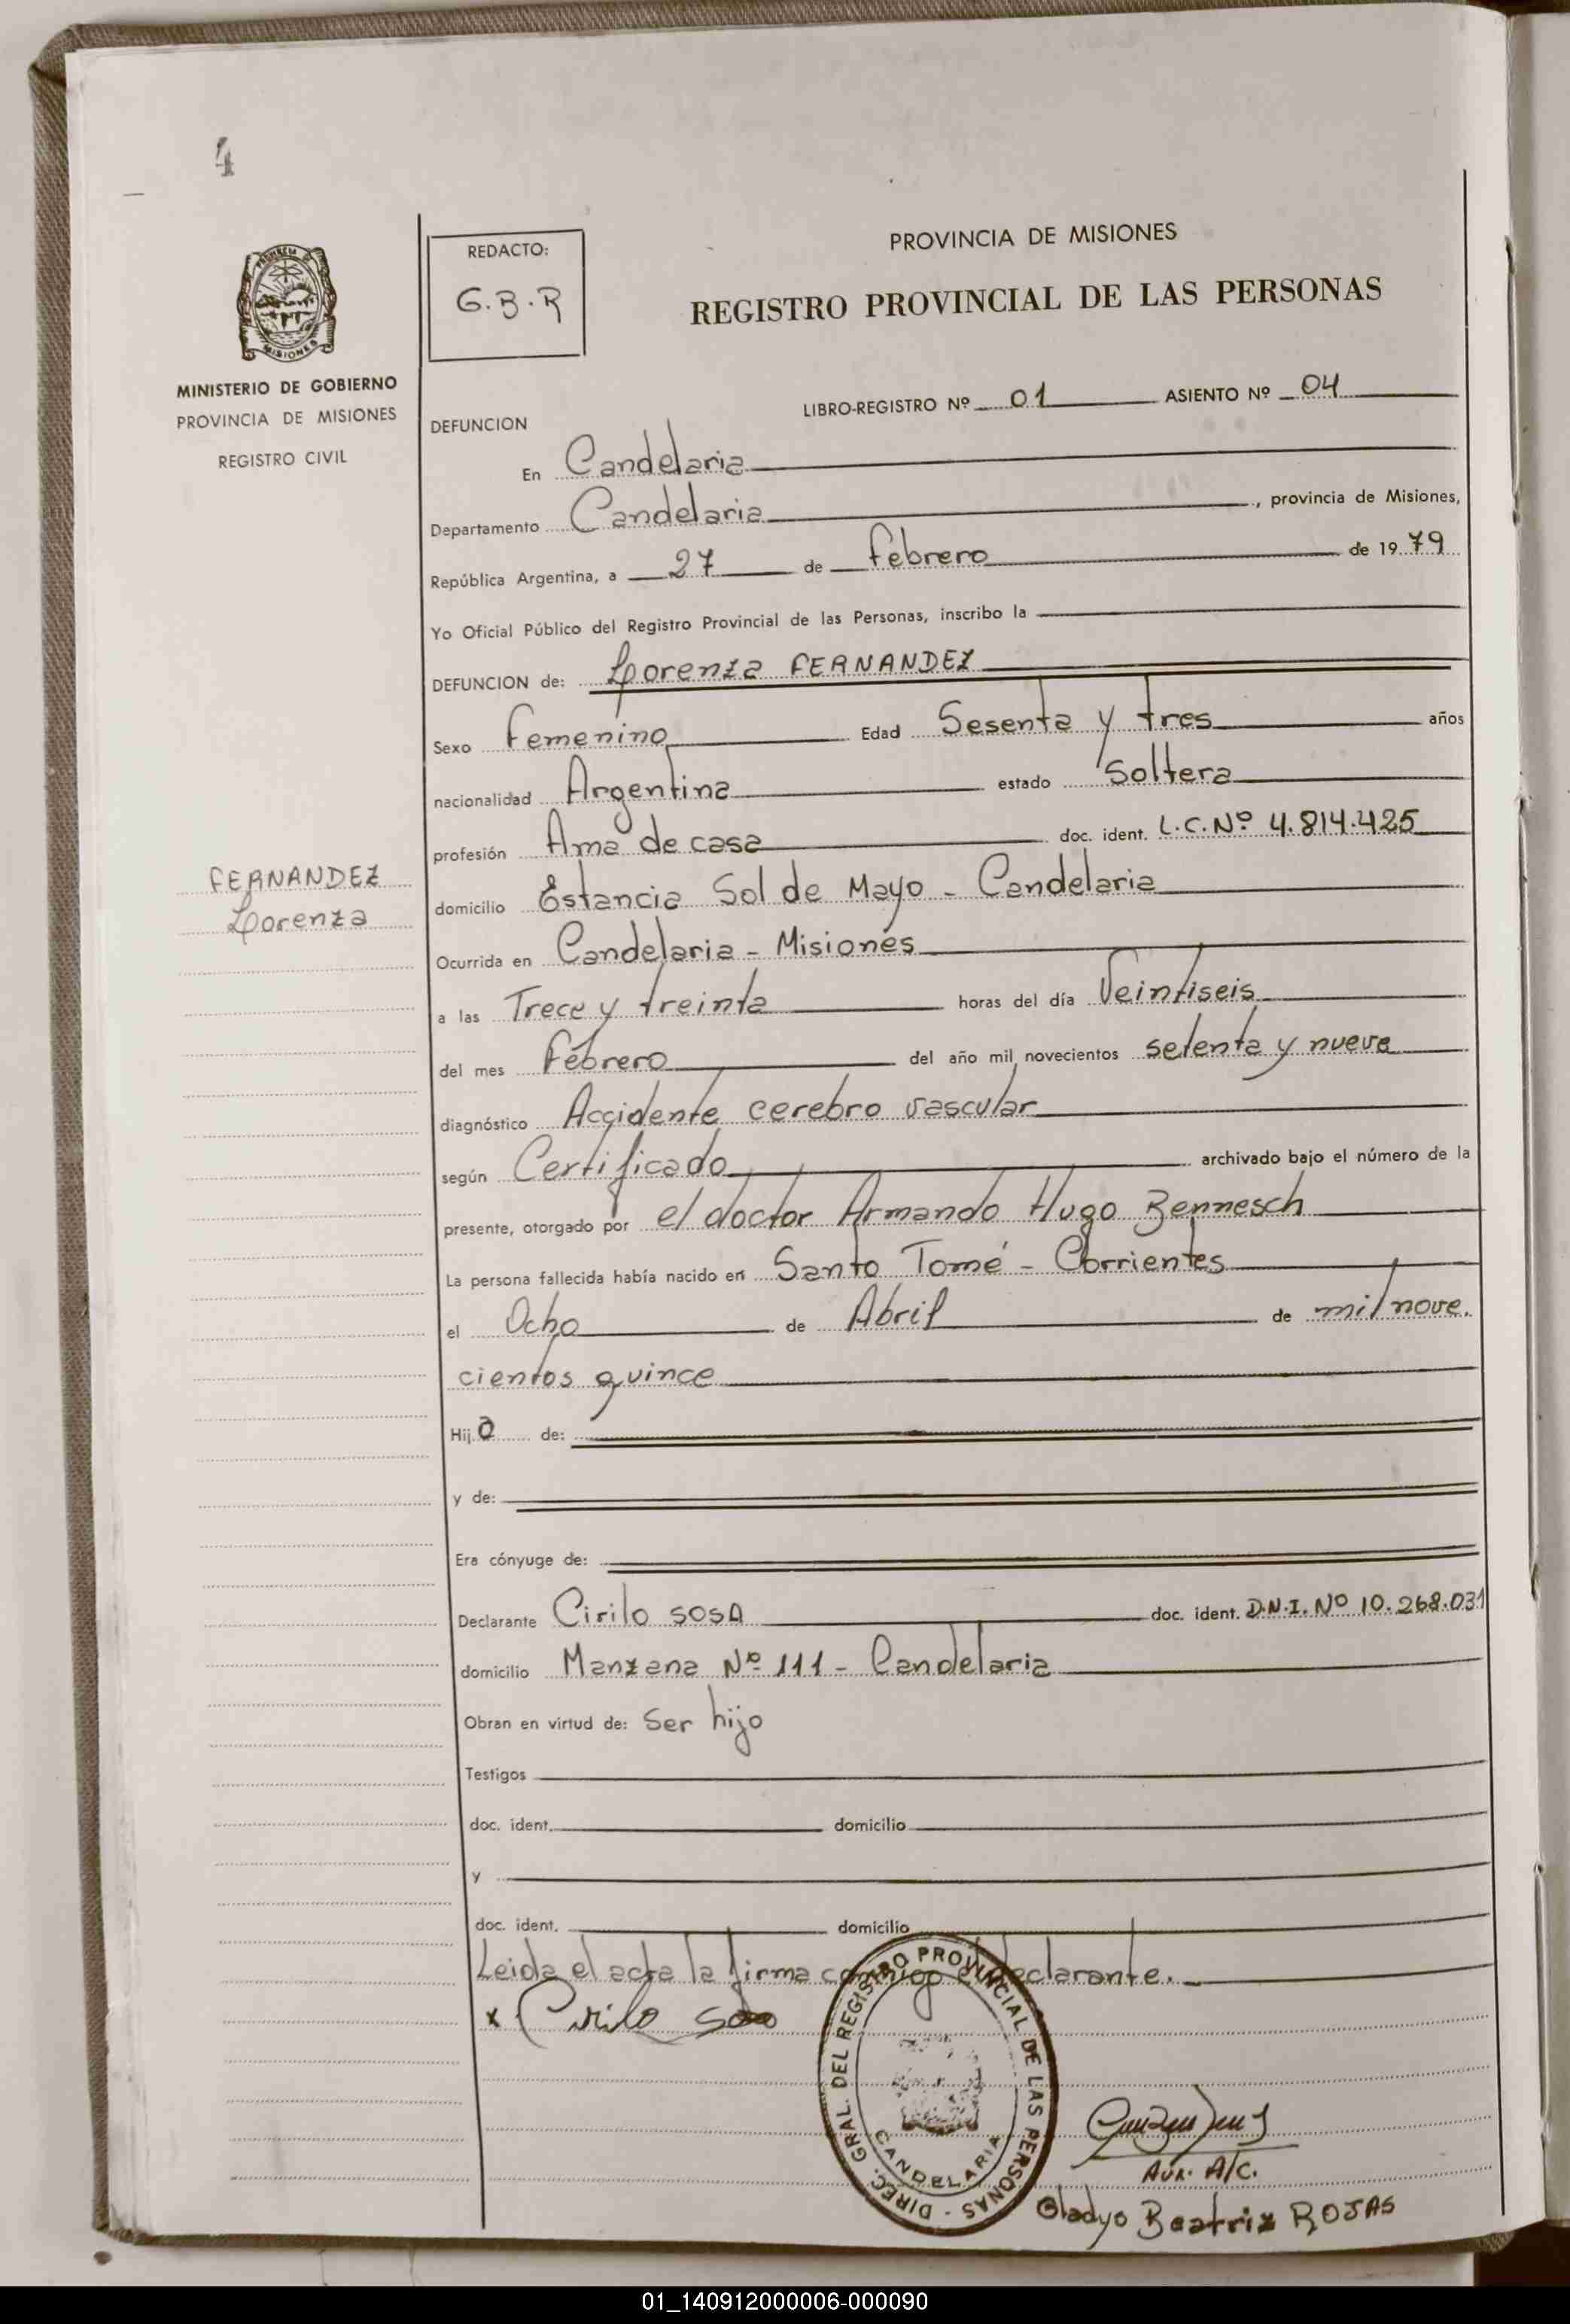 4
PROVINCIA DE MISIONES
REGISTRO PROVINCIAL DE LAS PERSONAS
REDACTO:
G.B.R
MISIONES
MINISTERIO DE GOBIERNO
PROVINCIA DE MISIONES
REGISTRO CIVIL
LIBRO-REGISTRO Nº 01 ASIENTO Nº 04
DEFUNCION
En Candelaria
Departamento Candelaria, provincia de Misiones,
República Argentina, a 27 de febrero de 1979
Yo Oficial Público del Registro Provincial de las Personas, inscribo la
DEFUNCION de: Lorenza FERNANDEZ
Sexo femenino Edad Sesenta y tres años
nacionalidad Argentina estado Soltera
profesión Ama de casa doc. ident. L.C.Nº 4.814.425
FERNANDEZ
Lorenza
domicilio Estancia Sol de Mayo - Candelaria
Ocurrida en Candelaria - Misiones
a las Trece y treinta horas del día Veintiseis
del mes febrero del año mil novecientos setenta y nueve
diagnóstico Accidente cerebro vascular
según Certificado archivado bajo el número de la
presente, otorgado por el doctor Armando Hugo Bennesch
La persona fallecida había nacido en Santo Tomé - Corrientes
el Ocho de Abril de mil nove.
cientos quince
Hija de:
y de:
Era cónyuge de:
Declarante Cirilo SOSA doc. ident. D.N.I. Nº 10.268.031
domicilio Manzana Nº 111 - Candelaria
Obran en virtud de: Ser hijo
Testigos
doc. ident. domicilio
y
doc. ident. domicilio
Leida el acta la firma conmigo el declarante.
x Cirilo Sosa
DIREC. GRAL. DEL REGISTRO PROVINCIAL DE LAS PERSONAS -
CANDELARIA
Aux. A/C.
Gladys Beatriz ROJAS
01_140912000006-000090